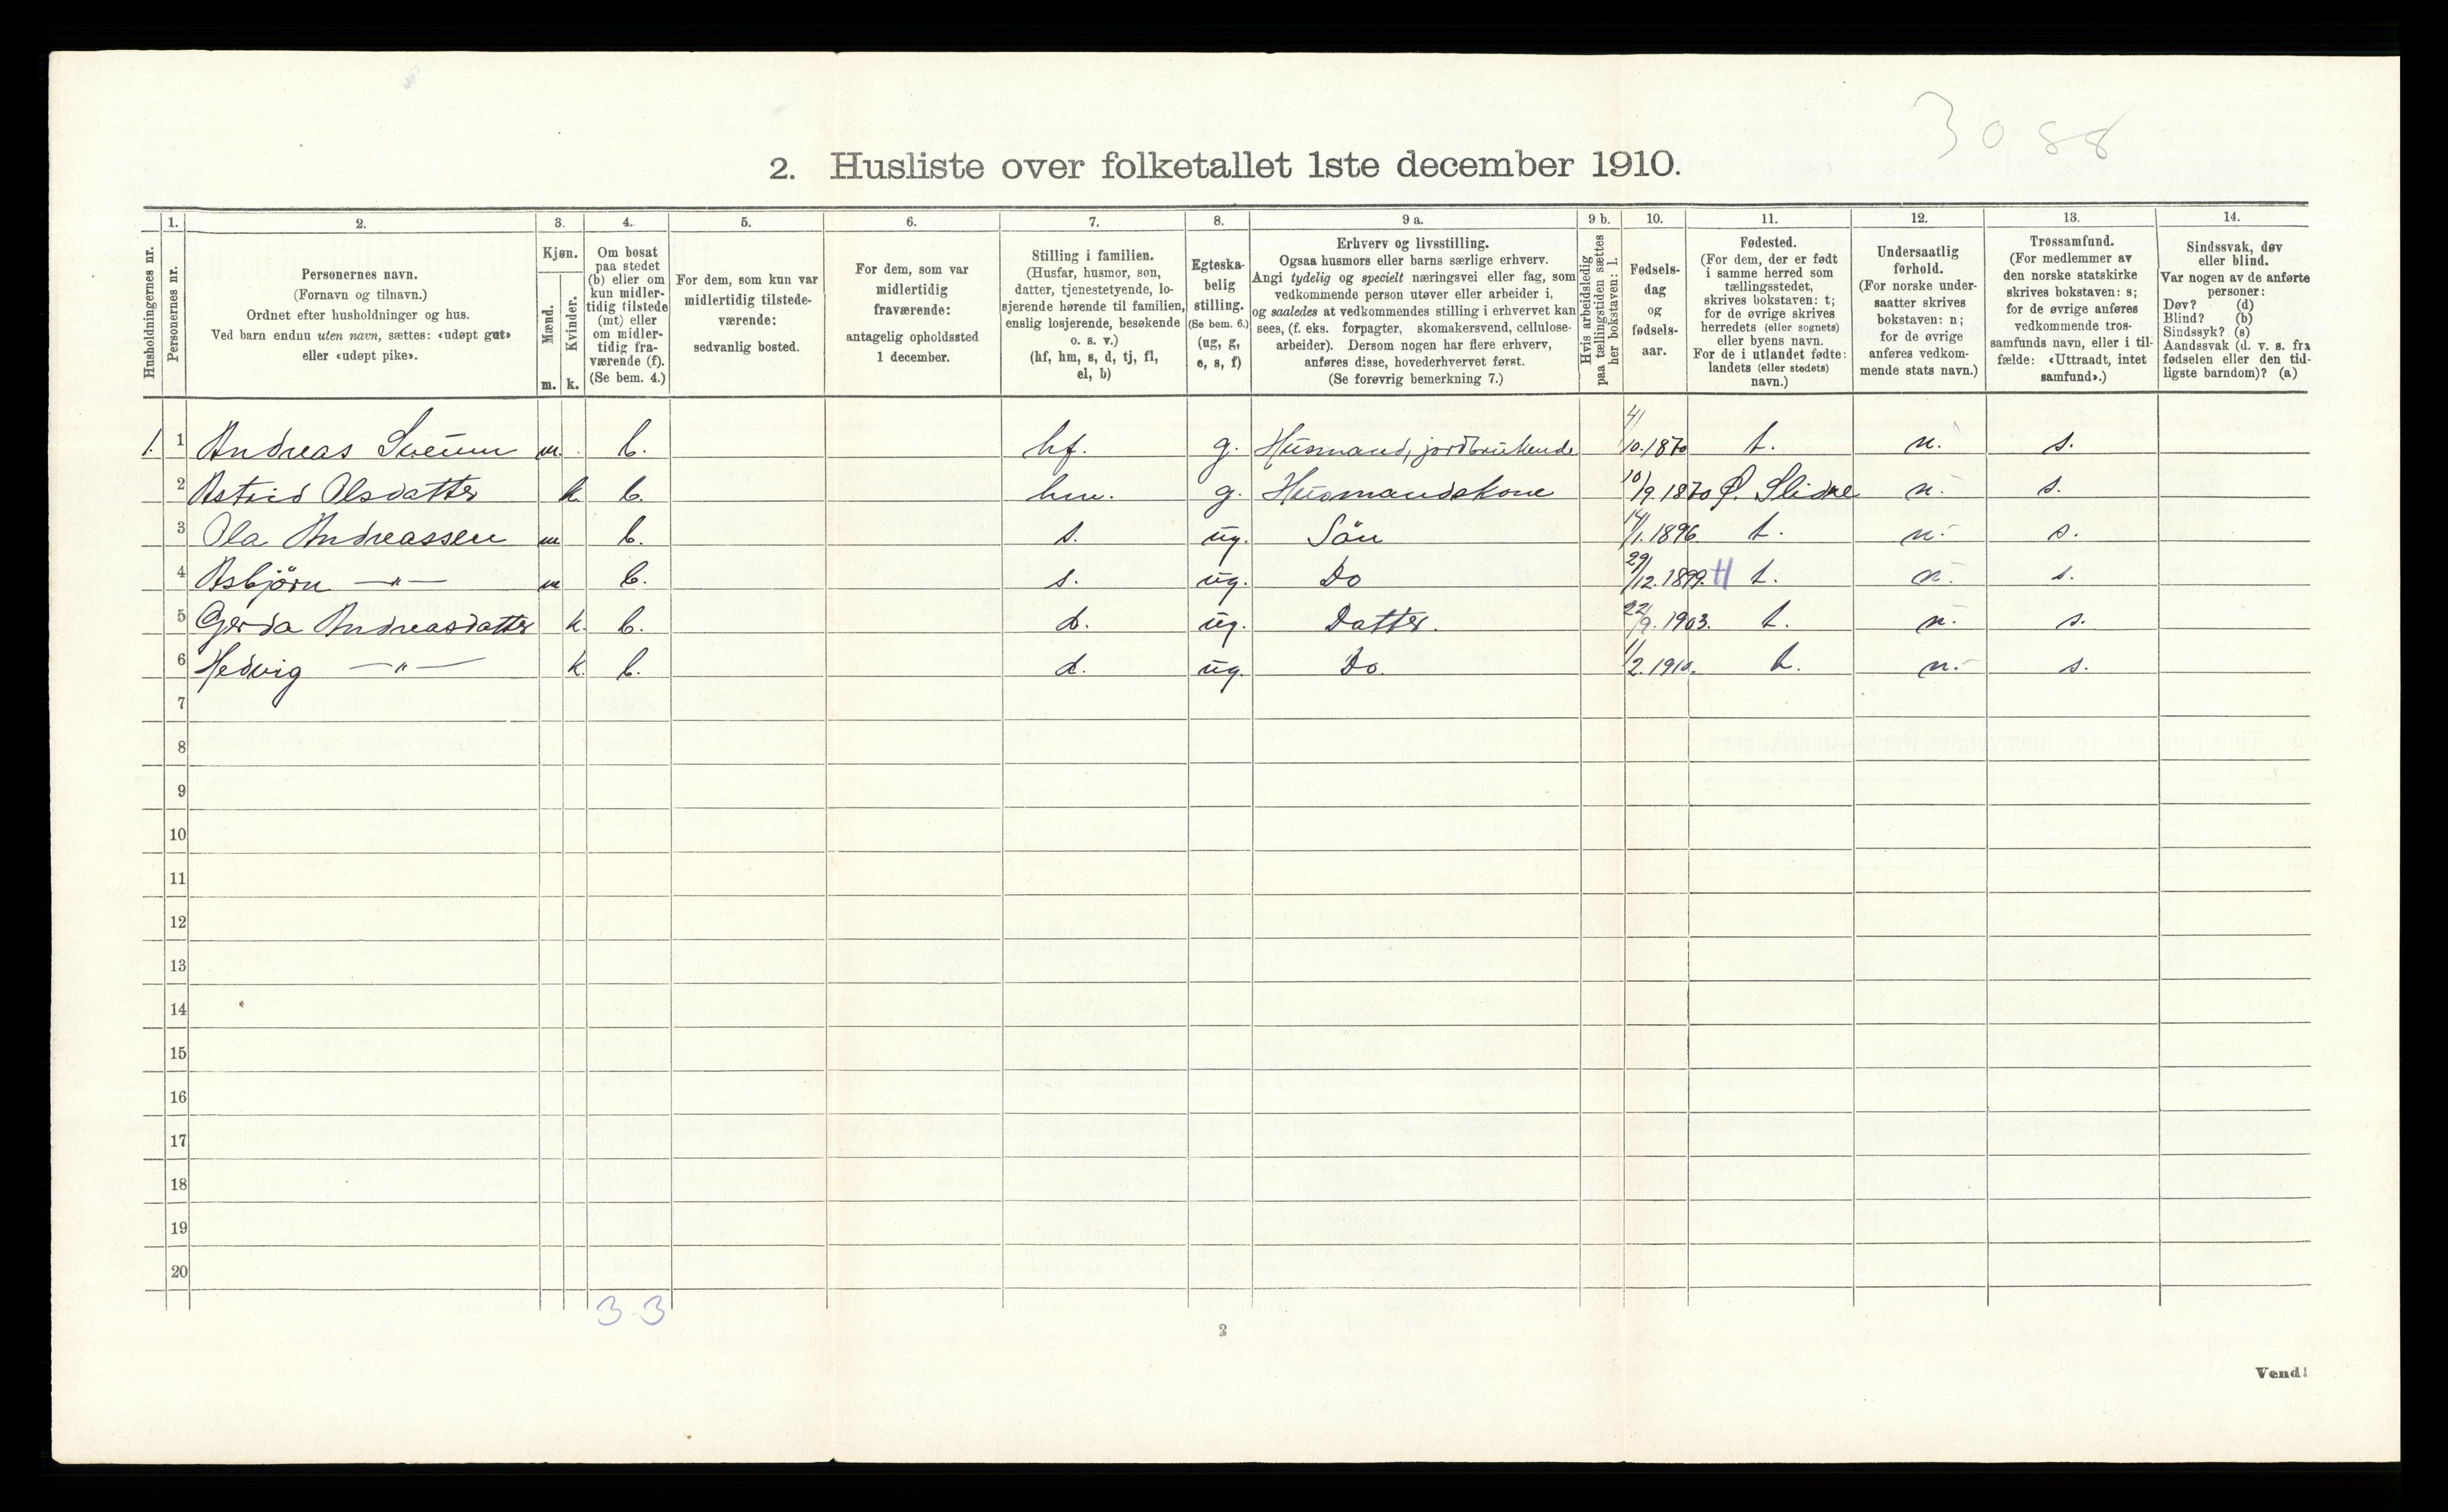 3088
2. Husliste over folketallet 1ste december 1910.
Husholdningernes nr.
1.
Personernes nr.
2.
Personernes navn.
(Fornavn og tilnavn.)
Ordnet efter husholdninger og hus.
Ved barn endnu uten navn, sættes: «udøpt gut»
eller «udøpt pike».
3.
Kjøn.
Mænd.
m.
Kvinder.
k.
4.
Om bosat
paa stedet
(b) eller om
kun midler-
tidig tilstede
(mt) eller
om midler-
tidig fra-
værende (f).
(Se bem. 4.)
5.
For dem, som kun var
midlertidig tilstede-
værende:
sedvanlig bosted.
6.
For dem, som var
midlertidig
fraværende:
antagelig opholdssted
1 december.
7.
Stilling i familien.
(Husfar, husmor, søn,
datter, tjenestetyende, lo-
sjerende hørende til familien,
enslig losjerende, besøkende
o. s. v.)
(hf, hm, s, d, tj, fl,
el, b)
8.
Egteska-
belig
stilling.
(Se bem. 6.)
(ug, g,
e, s, f)
9 a.
Erhverv og livsstilling.
Ogsaa husmors eller barns særlige erhverv.
Angi tydelig og specielt næringsvei eller fag, som
vedkommende person utøver eller arbeider i,
og saaledes at vedkommendes stilling i erhvervet kan
sees, (f. eks. forpagter, skomakersvend, cellulose-
arbeider). Dersom nogen har flere erhverv,
anføres disse, hovederhvervet først.
(Se forøvrig bemerkning 7.)
9 b.
Hvis arbeidsledig
paa tællingstiden sættes
her bokstaven: l.
10.
Fødsels-
dag
og
fødsels-
aar.
11.
Fødested.
(For dem, der er født
i samme herred som
tællingsstedet,
skrives bokstaven: t;
for de øvrige skrives
herredets (eller sognets)
eller byens navn.
For de i utlandet fødte:
landets (eller stedets)
navn.)
12.
Undersaatlig
forhold.
(For norske under-
saatter skrives
bokstaven: n;
for de øvrige
anføres vedkom-
mende stats navn.)
13.
Trossamfund.
(For medlemmer av
den norske statskirke
skrives bokstaven: s;
for de øvrige anføres
vedkommende tros-
samfunds navn, eller i til-
fælde: «Uttraadt, intet
samfund».)
14.
Sindssvak, døv
eller blind.
Var nogen av de anførte
personer:
Døv? (d)
Blind? (b)
Sindssyk? (s)
Aandssvak (d. v. s. fra
fødselen eller den tid-
ligste barndom)? (a)
1. 1 Andreas Sveum m. b. hf. g. Husmand, jordbrukende 4/10.1870 t. n. s.
2 Astrid Olsdatter k b. hm. g. Husmandskone 10/9.1870 Ø. Slidre n. s.
3 Ola Andreassen m b. s. ug. Sön 14/1.1896. t. n. s.
4 Asbjörn —"— m b. s. ug. Do 29/12.1899. H t. n. s.
5 Gerda Andreasdatter k. b. d. ug. Datter. 22/9.1903. t. n. s.
6 Hedvig —"— k. b. d. ug. Do. 1/2.1910. t. n. s.
7
8
9
10
11
12
13
14
15
16
17
18
19
20
3 3
2
Vend!